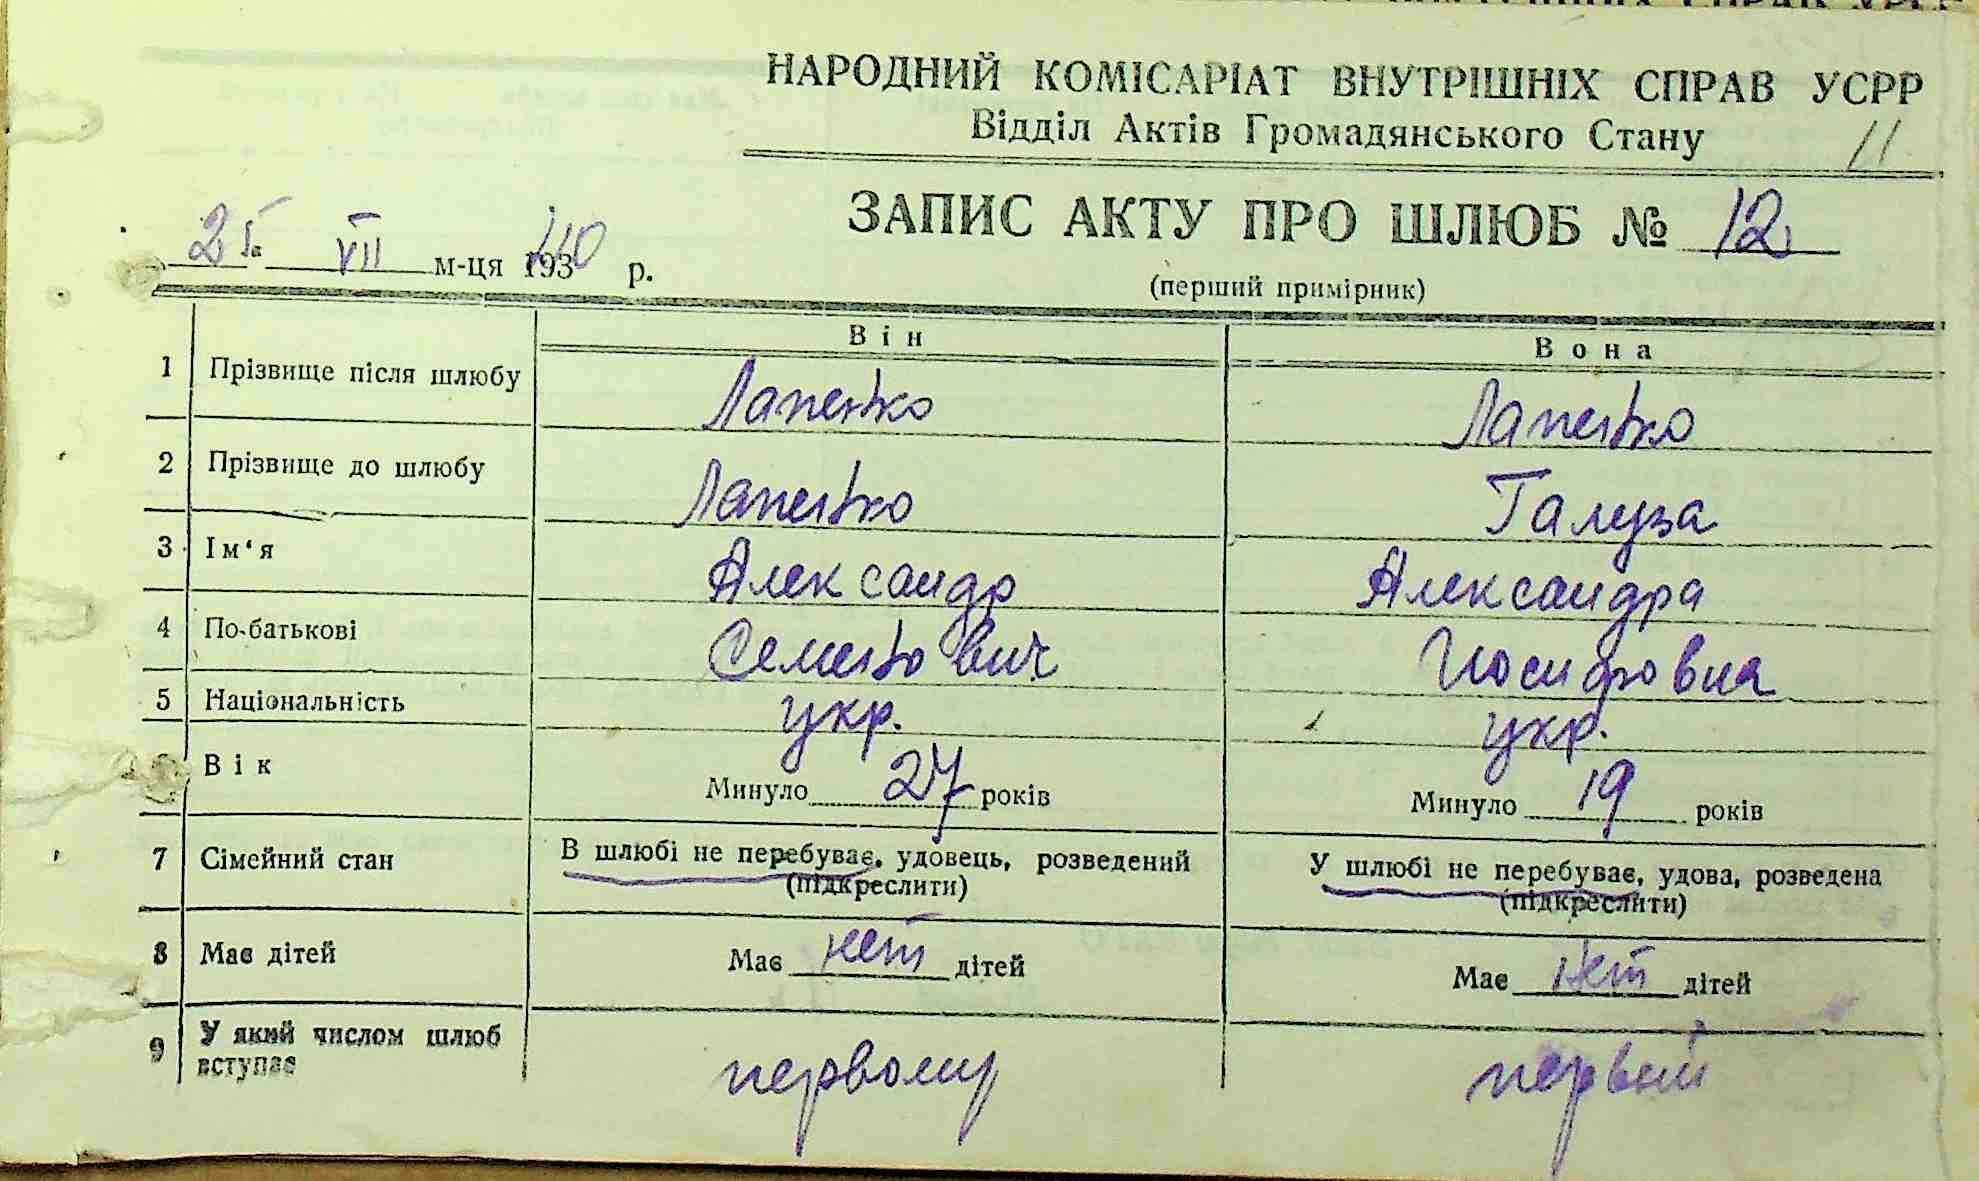 НАРОДНИЙ КОМІСАРІАТ ВНУТРІШНІХ СПРАВ УСРР
Відділ Актів Громадянського Стану
11
ЗАПИС АКТУ ПРО ШЛЮБ № 12
25 VII м-ця 1940 р.
(перший примірник)
Він Вона
1 Прізвище після шлюбу Лапенко Лапенко
2 Прізвище до шлюбу Лапенко Галуза
3 Ім'я Александр Александра
4 По-батькові Семенович Иосифовна
5 Національність укр. укр.
6 Вік Минуло 27 років Минуло 19 років
7 Сімейний стан В шлюбі не перебуває, удовець, розведений У шлюбі не перебуває, удова, розведена
(підкреслити) (підкреслити)
8 Має дітей Має нет дітей Має нет дітей
9 У який числом шлюб вступає первому первый